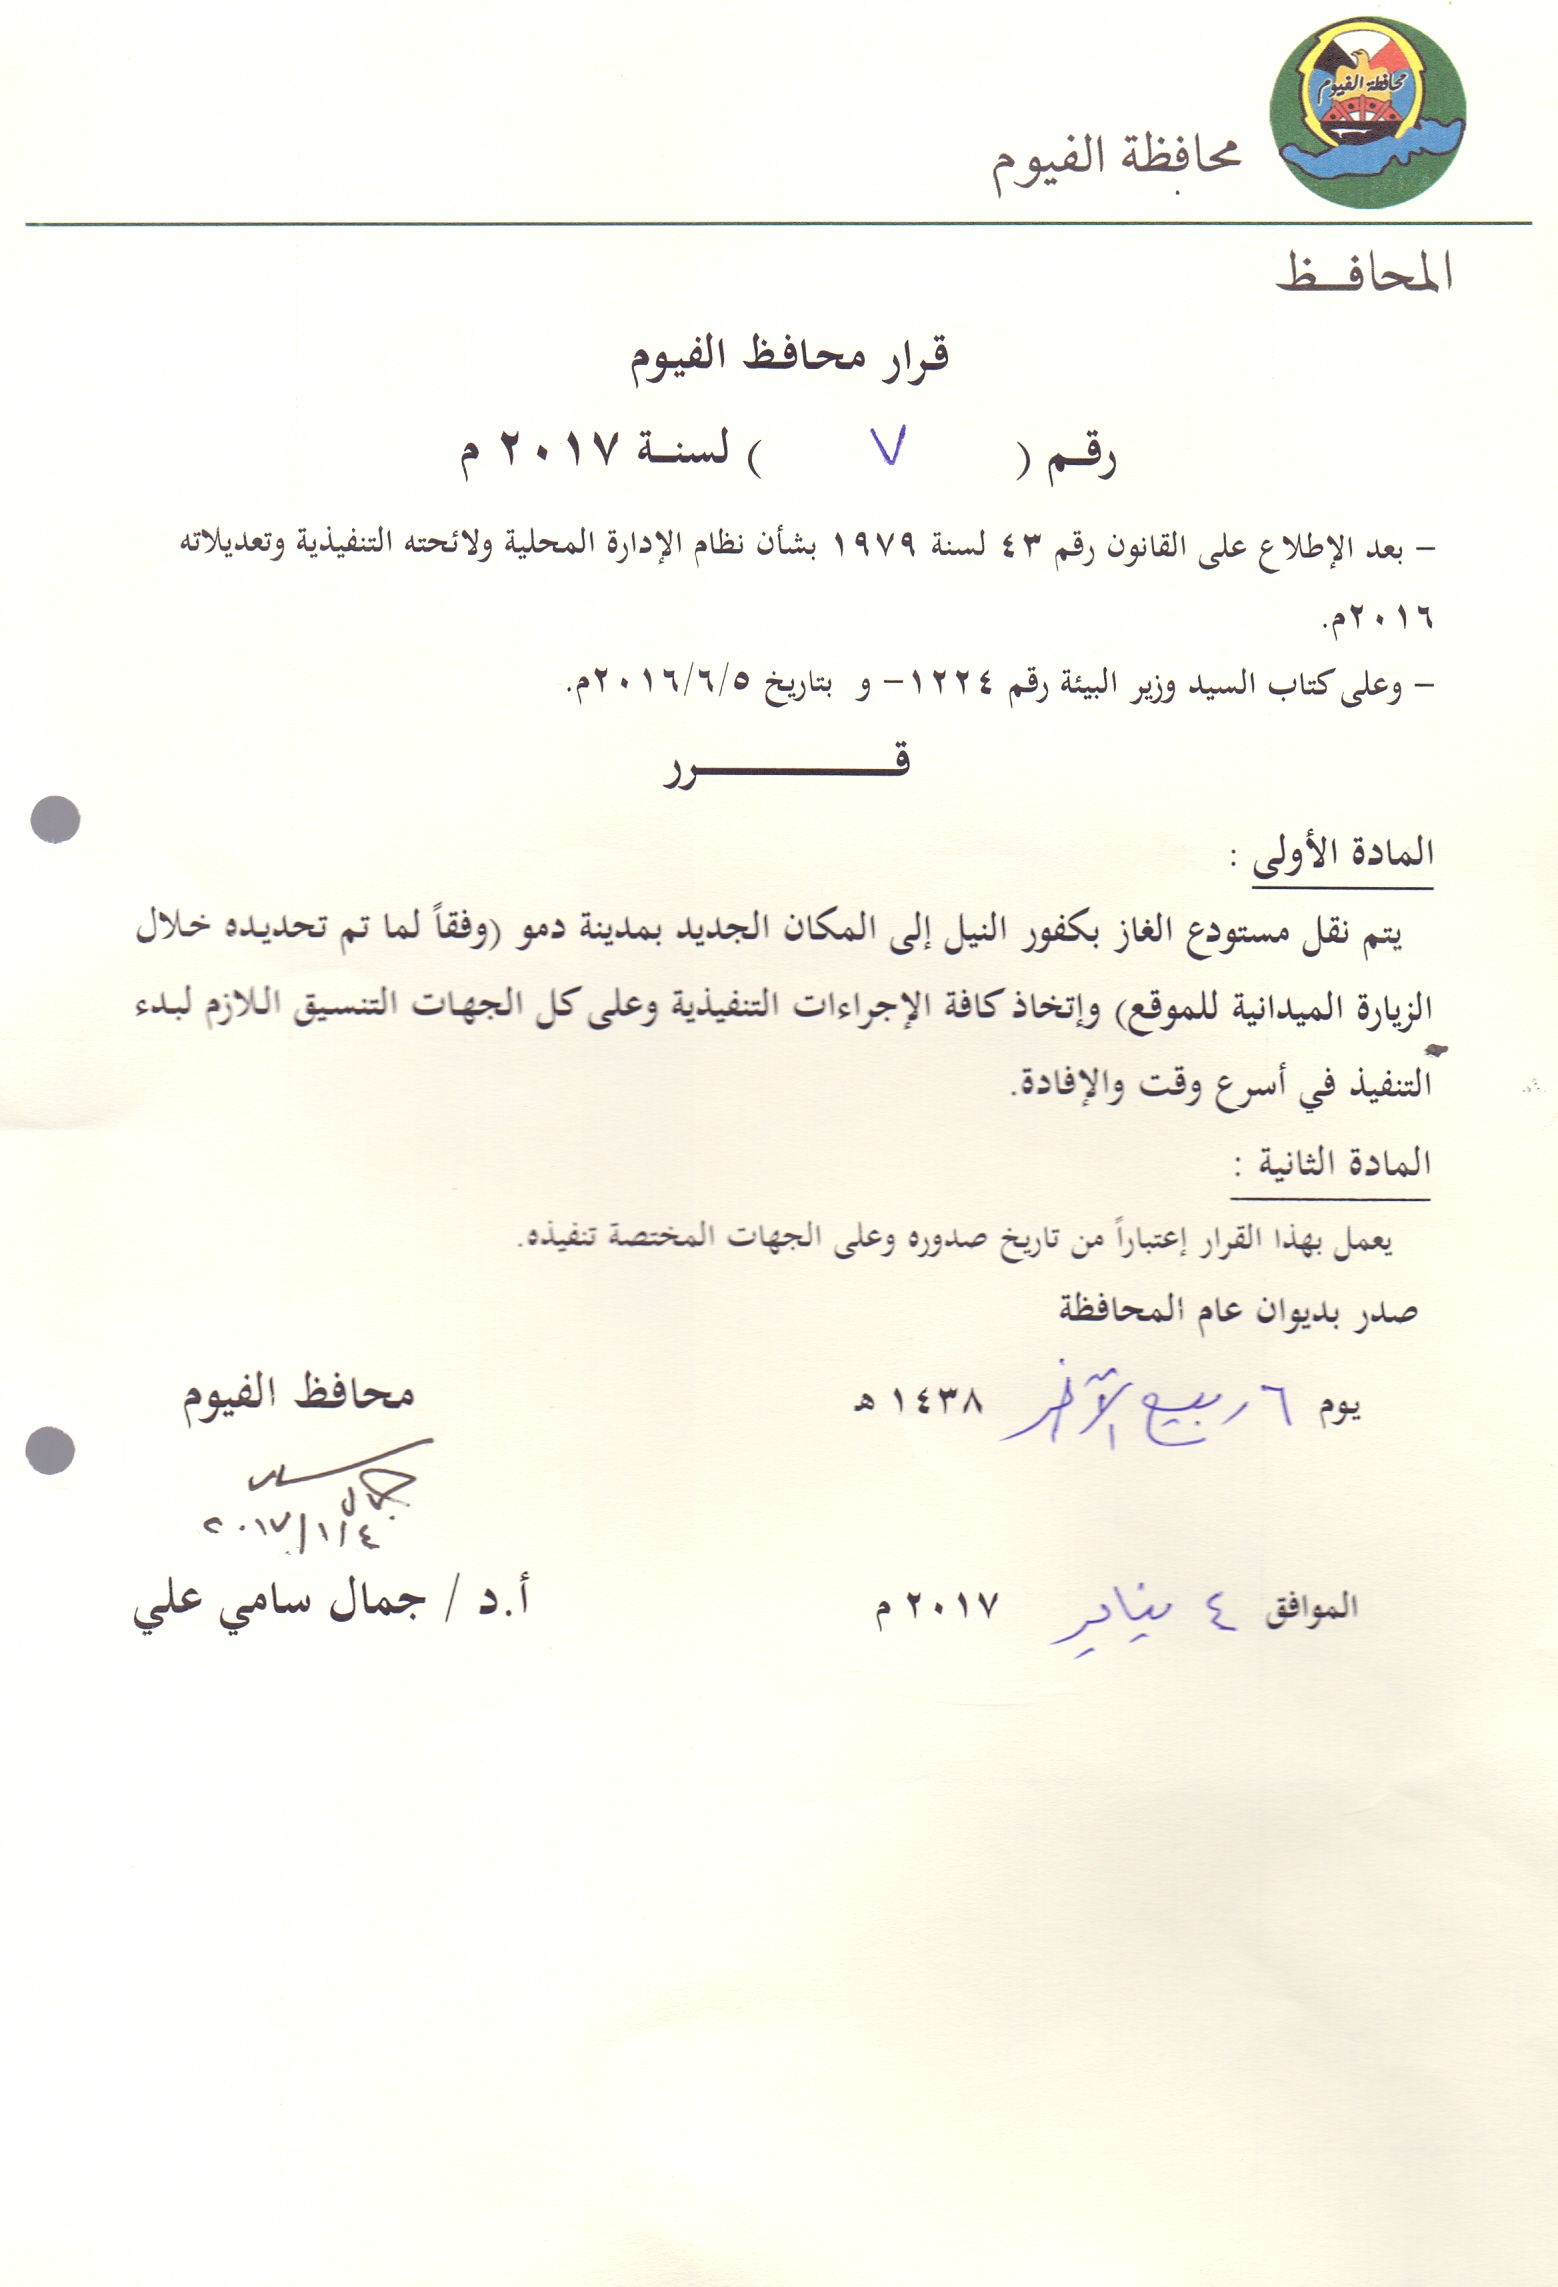 محافظة الفيوم
محافظة الفيوم
المحافــظ
قرار محافظ الفيوم
رقــم ( ٧ ) لسنــة ٢٠١٧ م
– بعد الإطلاع على القانون رقم ٤٣ لسنة ١٩٧٩ بشأن نظام الإدارة المحلية ولائحته التنفيذية وتعديلاته
٢٠١٦م.
– وعلى كتاب السيد وزير البيئة رقم ١٢٢٤– و بتاريخ ٢٠١٦/٦/٥م.
قــــــــــرر
المادة الأولى :
يتم نقل مستودع الغاز بكفور النيل إلى المكان الجديد بمدينة دمو (وفقاً لما تم تحديده خلال
الزيارة الميدانية للموقع) وإتخاذ كافة الإجراءات التنفيذية وعلى كل الجهات التنسيق اللازم لبدء
التنفيذ في أسرع وقت والإفادة.
المادة الثانية :
يعمل بهذا القرار إعتباراً من تاريخ صدوره وعلى الجهات المختصة تنفيذه.
صدر بديوان عام المحافظة
يوم ٦ ربيع الآخر ١٤٣٨ هـ
محافظ الفيوم
جمال سامى
٢٠١٧/١/٤
الموافق ٤ يناير ٢٠١٧ م
أ.د / جمال سامي علي